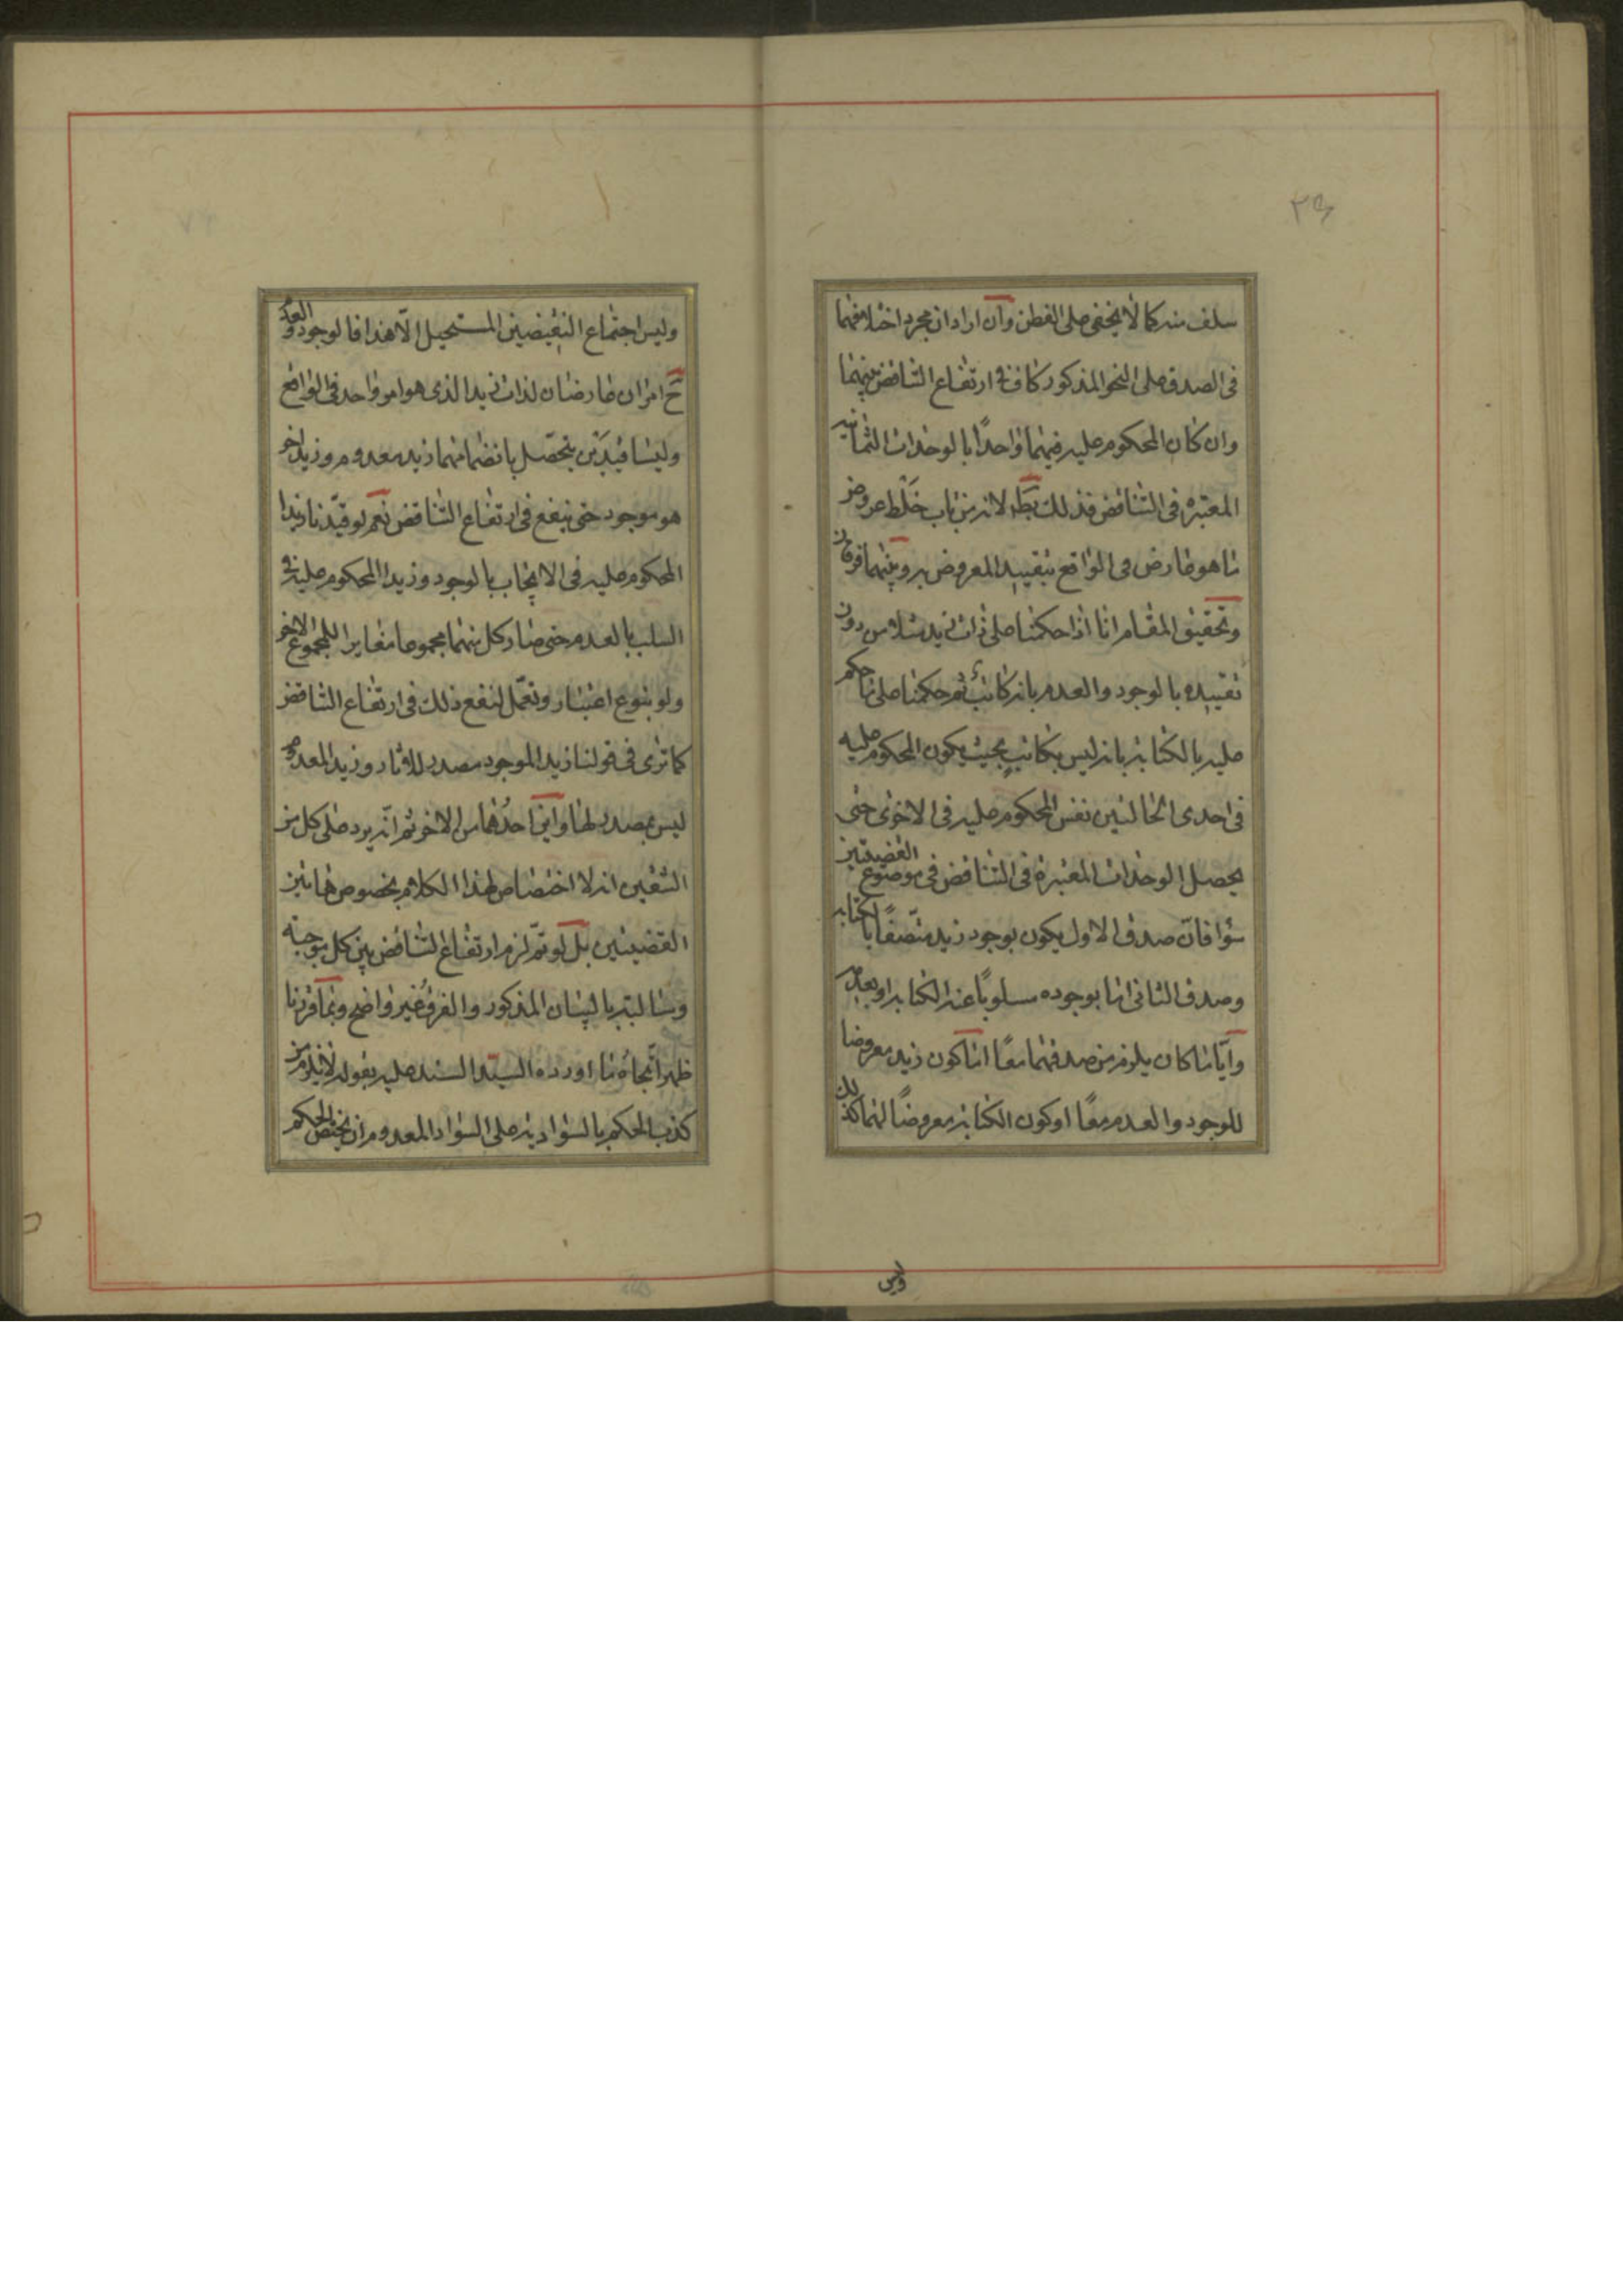 ٢٩
سلف منه كما لا يخفى على الفطن وان اراد ان مجرد اختلافهما
فى الصدق على النحو المذكور كاف فى ارتفاع التناقض بينهما
وان كان المحكوم عليه فيهما واحدًا بالوحدات الثمانيه
المعتبره فى التناقض فذلك بط لانه من باب خلط عروض
ما هو عارض فى الواقع بتقييد المعروض به وبينهما فرقان
وتحقيق المقام انا اذا حكمنا على ذات زيد مثلا من دون
تقييده بالوجود والعدم بانه كاتب ثم حكمنا على ما حكم
عليه بالكتابه بانه ليس بكاتب بحيث يكون المحكوم عليه
فى احدى الحالتين نفس المحكوم عليه فى الاخرى حتى
يحصل الوحدات المعتبرة فى التناقض فى موضوع القضيتين
سؤا فانّ صدق الاول يكون بوجود زيد متّصفًا بالكتابه
وصدق الثانى اما بوجوده مسلوبًا عنه الكتابه او بعدمه
وايّا ما كان يلزم من صدقهما معًا اما كون زيد معروضا
للوجود والعدم معًا او كون الكتابه معروضًا لهما كذلك
وليس
وليس اجتماع النقيضين المستحيل الّا هذا فالوجود والعدم
ح امران عارضان لذات زيد الذى هو امر واحد فى الواقع
وليسا قيدين يتحصّل بانضمامهما زيد معدوم وزيد اخر
هو موجود حتى ينفع فى ارتفاع التناقض نعم لو قيّدنا زيدا
المحكوم عليه فى الايجاب بالوجود وزيدا المحكوم عليه فى
السلب بالعدم حتى صار كل منهما مجموعا مغايرا للمجموع الاخر
ولو بنوع اعتبار وتعمّل لنفع ذلك فى ارتفاع التناقض
كما ترى فى قولنا زيد الموجود مصدر للاثار وزيد المعدوم
ليس بمصدر لها واين احدهما من الاخر ثم انّه يرد على كل من
الشقين انه لا اختصاص لهذا الكلام بخصوص هاتين
القضيتين بل لو تمّ لزم ارتفاع التناقض بين كل موجبة
وسالبته بالبيان المذكور والفرق غير واضح وبما قررنا
ظهر اتّجاه ما اورده السيّد السند عليه بقوله لا يلزم من
كذب الحكم بالسواديه على السواد المعدوم ان يختص الحكم